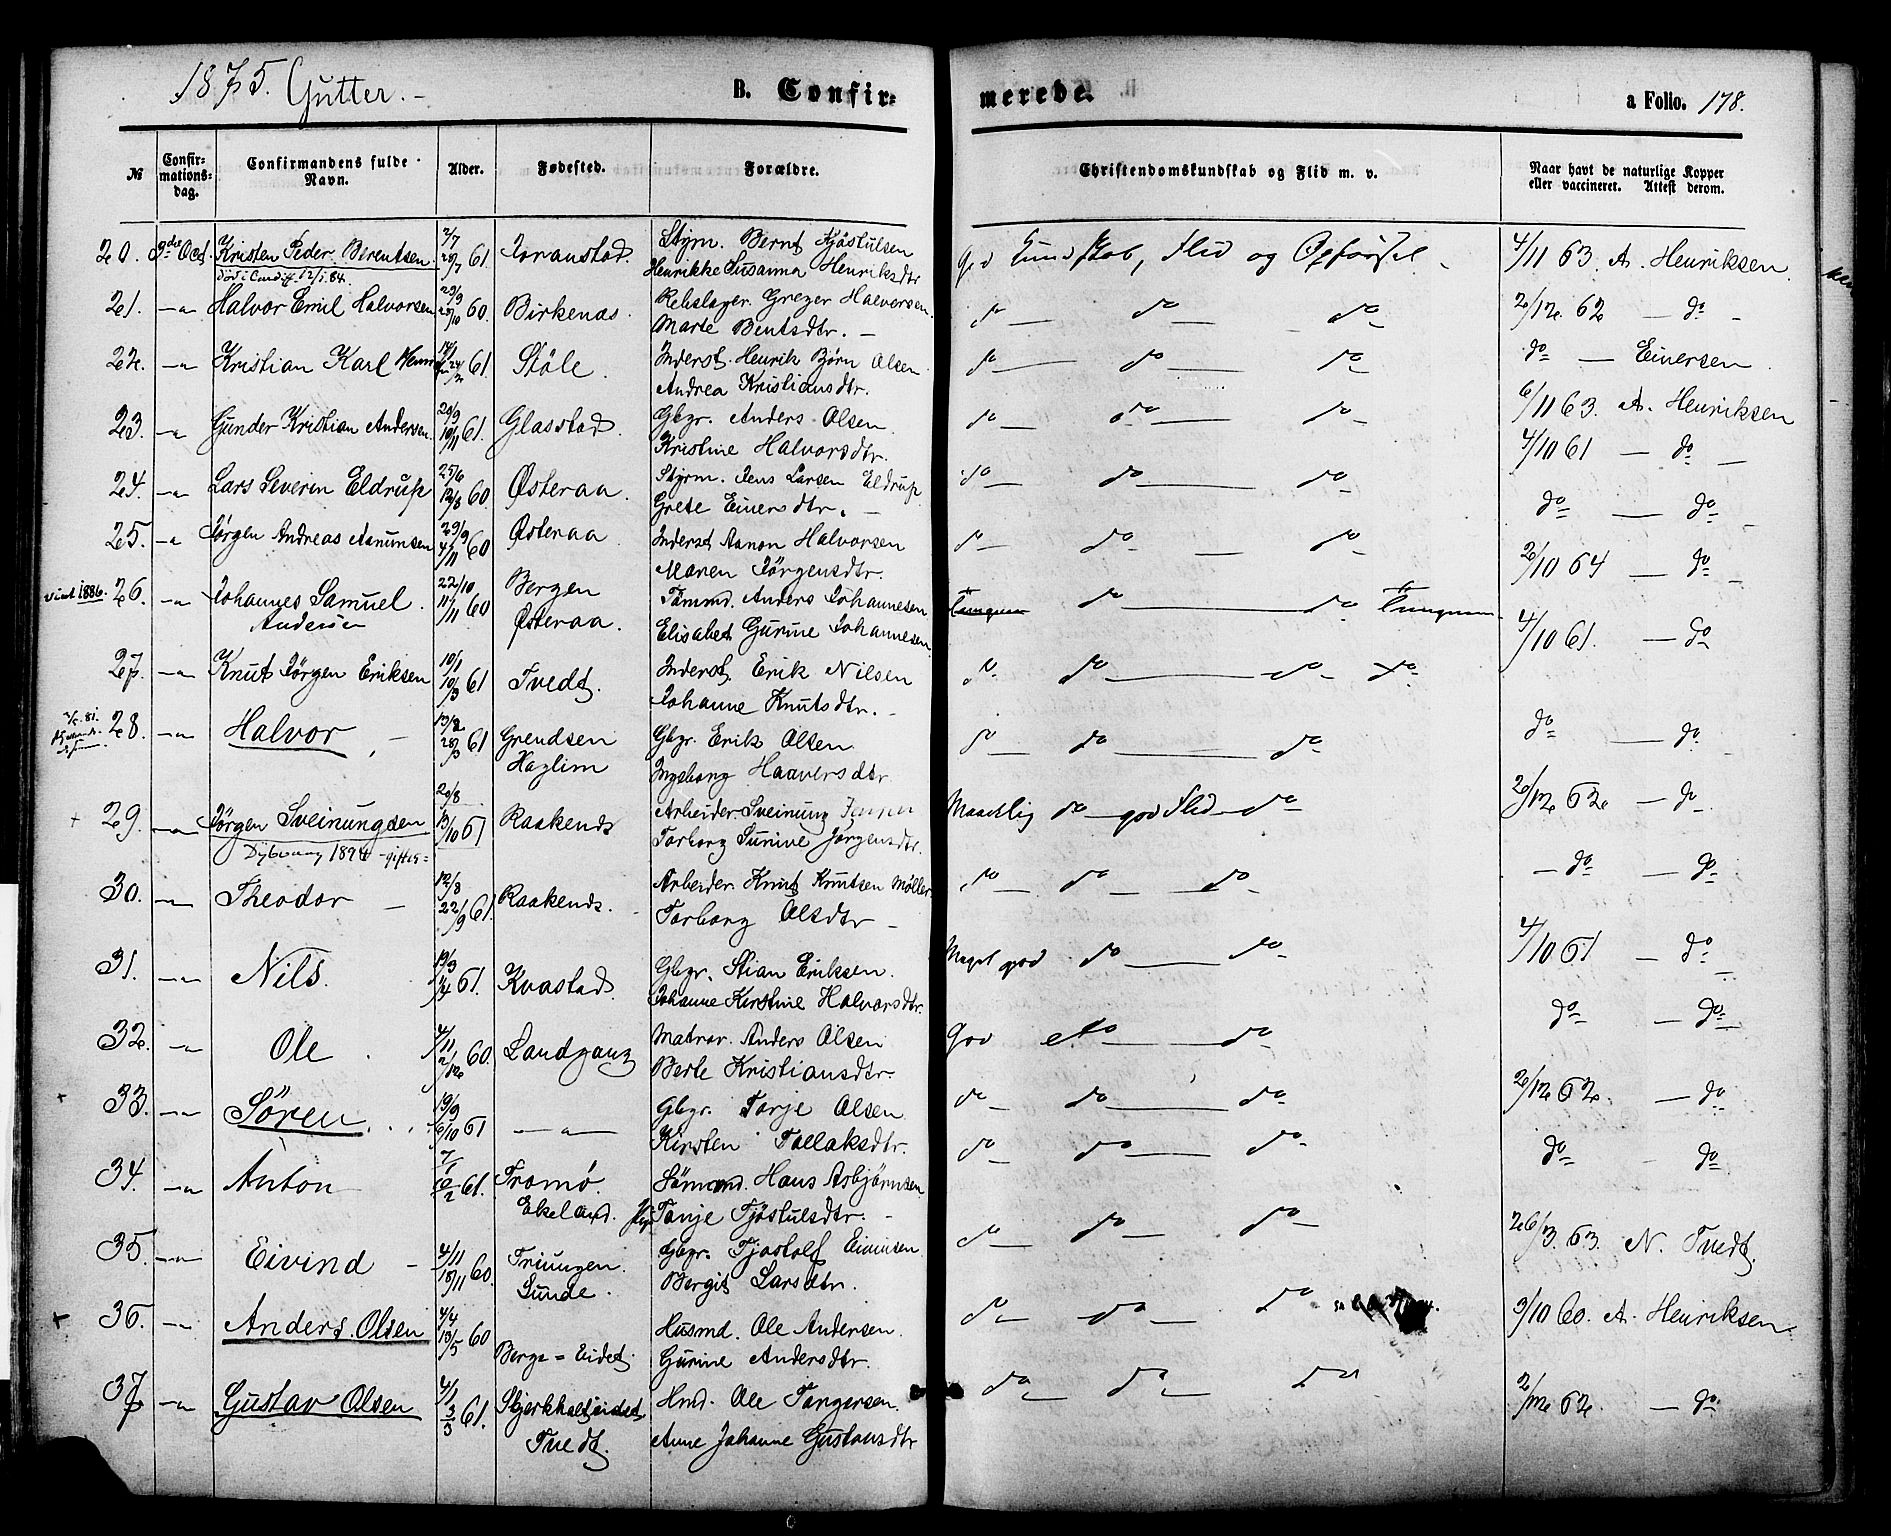 1875. Gutter.-
B. Confir-
merede.
a Folio. 178.
№
Confir-
mations-
dag.
Confirmandens fulde
Navn.
Alder.
Fødested.
Forældre.
Christendomskundskab og Flid m. v.
Naar havt de naturlige Kopper
eller vaccineret. Attest derom.
20. 3die Oct. Kristen Peder Berentsen 61 Styrm. Bernt Kjøstulsen
død i Cardiff 12/1 84. Henrikke Susanna Henriksdtr
God Kundskab, Flid og Opførsel - 4/11 63. A. Henriksen
21. -"- Halvor Emil Halvorsen 23/9 60. Birkenæs. Rebslager. Greger Halvorsen.
Marte Bentsdtr. -
do do do 2/12 62 - do -
22. -"- Kristian Karl 61. Støle. Inderst. Henrik Bjørn Olsen
Andrea Kristiansdtr.
do do do do - Einersen
23. -"- Gunder Kristian Andersen. 20/9 10/11 61. Glasstad. Gbgr. Anders Olsen.
Kristine Halvorsdtr.
do do do 6/11 63. A. Henriksen
24. -"- Lars Severin Eldrup 25/6 12/8 60 Østeraa. Styrm. Jens Larsen Eldrup
Grete Einersdtr. -
do do do 4/10 61 - do -
25. -"- Jørgen Andreas Aanunsen 29/9 4/11 60 Østeraa Inderst Aanon Halvorsen
Maren Jörgensdtr.
do do do do - do -
26. -"- Johannes Samuel 22/10 11/11 60 Bergen Tømmd. Anders Johannesen
Andersen Østeraa. Elisabet Gurine Johannesen
do do 2/10 64 - do -
27. -"- Knut Jörgen Eriksen 10/1 10/3 61 Tvedt. Inderst. Erik Nilsen
Johanne Knutsdtr. -
do do do do 4/10 61. - do
28. -"- Halvor - 13/2 28/3 61 Grendsen Gbgr. Erik Olsen
Ingeborg Haaversdtr
do do do do - do
+ 29. -"- Jørgen Sveinungsen 20/8 13/10 61 Raakenes Arbeider. Sveinung
Dybvaag 1894 -giftes= Torborg Jørgensdtr.
Maadelig do - god Flid - do 2/12 62 - do
30. -"- Theodor - 12/8 22/9 61. Raakenes. Arbeider. Knut Knutsen Møller
Torborg Olsdtr -
do do do - do - do
31. -"- Nils. 19/3 61. Kvastad Gbgr. Stian Eriksen.
Johanne Kirstine Halvorsdtr.
Meget god do do 4/10 61 - do -
32. -"- Ole. 4/11 2/12 60. Landgang Matros. Anders Olsen
Berte Kristiansdtr.
God do do do - do
+ 33. -"- Sören 19/9 6/10 61 - " - Gbgr. Tarje Olsen
Kirsten Tallaksdtr.
do do do 2/12 62 - do
34. -"- Anton 7/1 10/2 61. Tromø. Sömand. Hans Asbjörnsen
Ekeland. Tanje Tjöstulsdtr. -
do do do do - do
35. -"- Eivind - 4/11 18/11 60. Gbgr. Tjostolf Eivinsen.
Sunde. Bergit Larsdtr.
do do do 26/3. 63. N. Tvedt.
+ 36. -"- Anders. Olsen 4/4 13/5 60 Husmd. Ole Andersen.
Berge = Eidet. Gurine Andersdtr.
do do do 3/10 60. A. Henriksen
37 -"- Gustav Olsen 4/1 3/3 61. Hmd. Ole Tangersen.
Tvedt. Anne Johanne Gustavsdtr
do do do 2/12 62. - do